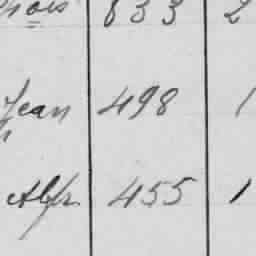 833 2
Jean 498 1
Alfr. 455 1